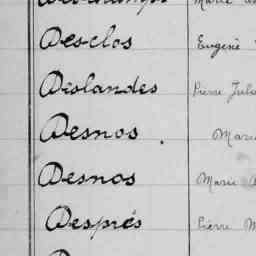 Desclos Eugène
Deslandes Pierre
Desnos. Marie
Desnos Marie
Després Pierre